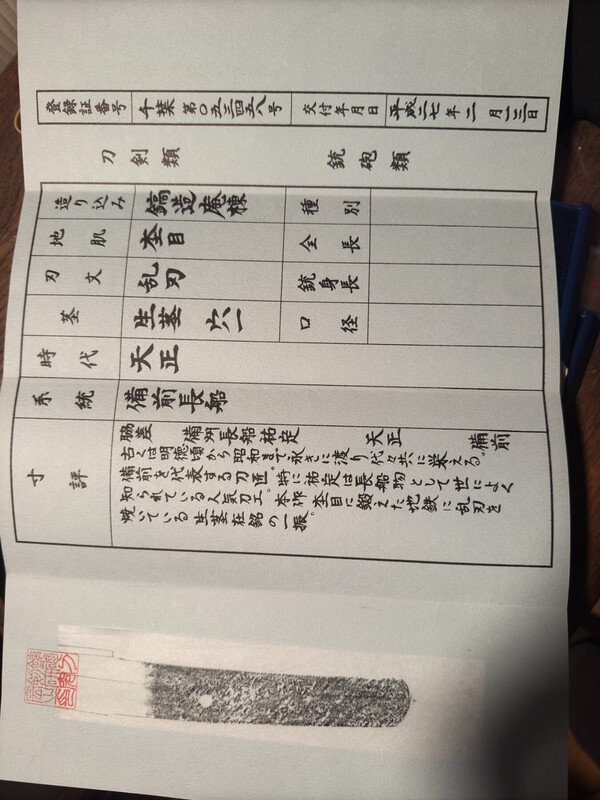 登録証番号 千葉 第〇五三四五八号 交付年月日 平成二七年二月一三日
刀剣類 銃砲類
造り込み 鎬造庵棟 種別
地肌 杢目 全長
刃文 乱刃 銃身長
茎 生茎 穴一 口径
時代 天正
系統 備前長船
寸評
脇差 備州長船祐定 天正 備前
古くは明徳頃から昭和まで永きに渡り代々共に栄える。
知備前を代表する刀匠。特に祐定は長船物として世によく
知られている人気刀工。本作杢目に鍛えた地鉄に乱刃を
焼いている生茎在銘の一振。